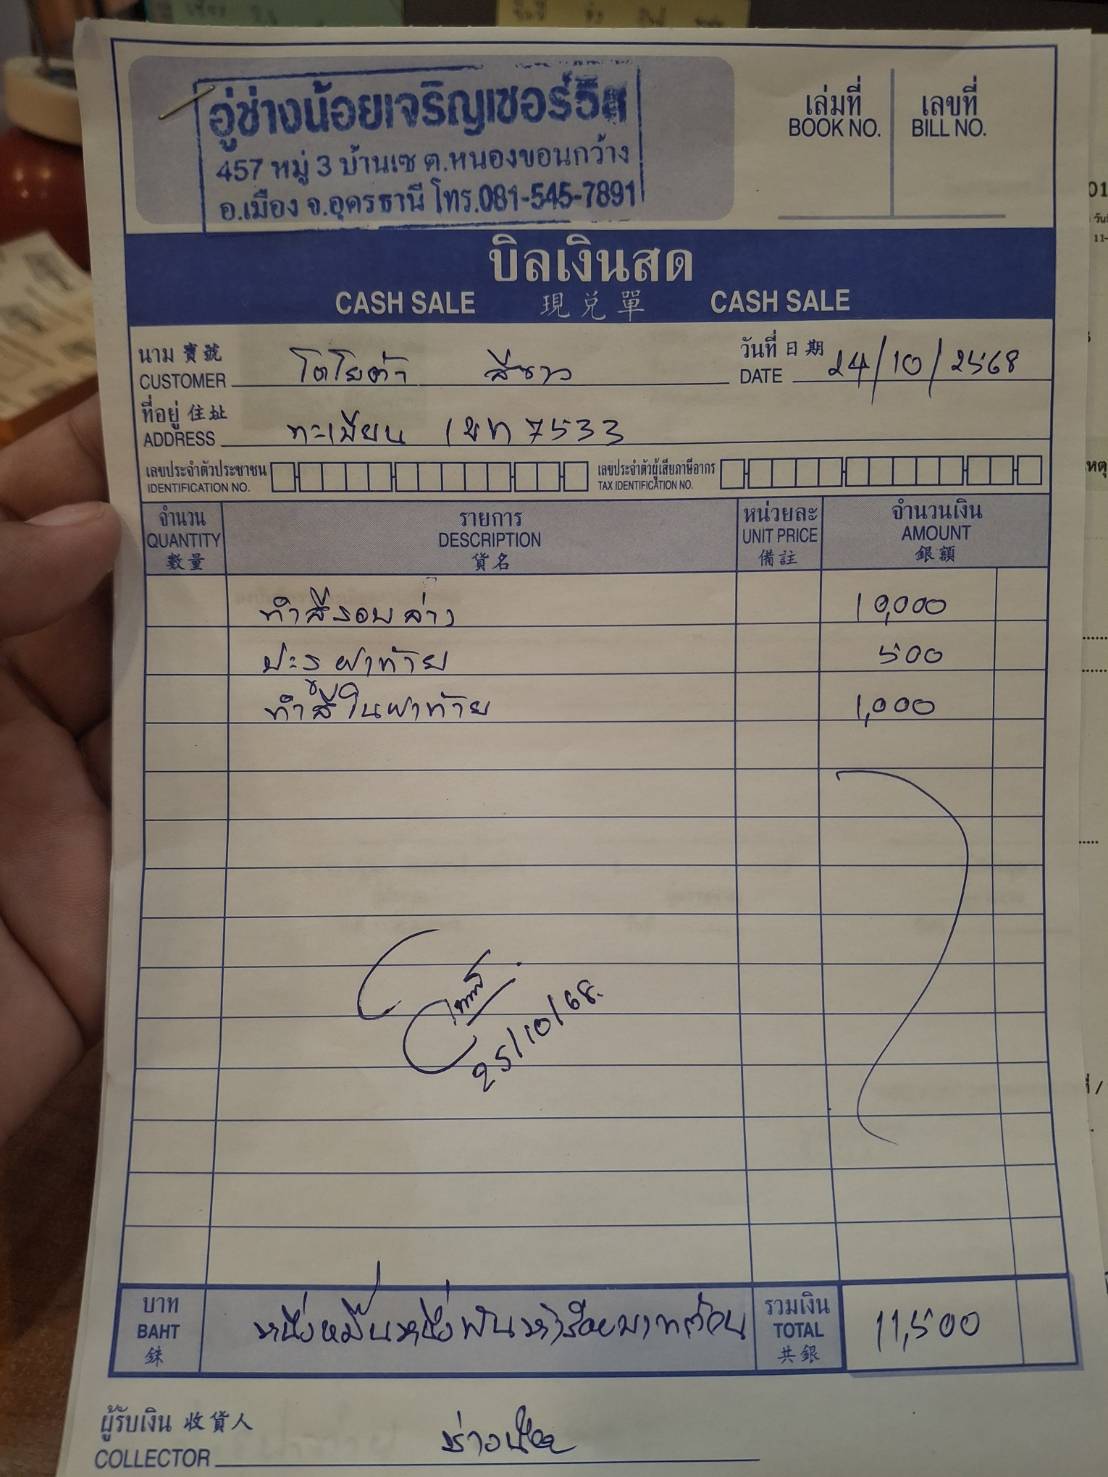 อู่ช่างน้อยเจริญเซอร์วิส
457 หมู่ 3 บ้านเซ ต.หนองขอนกว้าง
อ.เมือง จ.อุดรธานี โทร.081-545-7891
เล่มที่ เลขที่
BOOK NO. BILL NO.
บิลเงินสด
CASH SALE 現兌單 CASH SALE
นาม 寶號 โตโยต้า สีขาว วันที่ 日期 24/10/2568
CUSTOMER DATE
ที่อยู่ 住址 ทะเบียน เขท 7533
ADDRESS
เลขประจำตัวประชาชน เลขประจำตัวผู้เสียภาษีอากร
IDENTIFICATION NO. TAX IDENTIFICATION NO.
จำนวน รายการ หน่วยละ จำนวนเงิน
QUANTITY DESCRIPTION UNIT PRICE AMOUNT
數量 貨名 備註 銀額
ทำสีรอบล่าง 10,000
ปะรูฝาท้าย 500
ทำสีในฝาท้าย 1,000
25/10/68.
บาท หนึ่งหมื่นหนึ่งพันห้าร้อยบาทถ้วน รวมเงิน 11,500
BAHT TOTAL
銖 共銀
ผู้รับเงิน 收貨人 ช่างน้อย
COLLECTOR